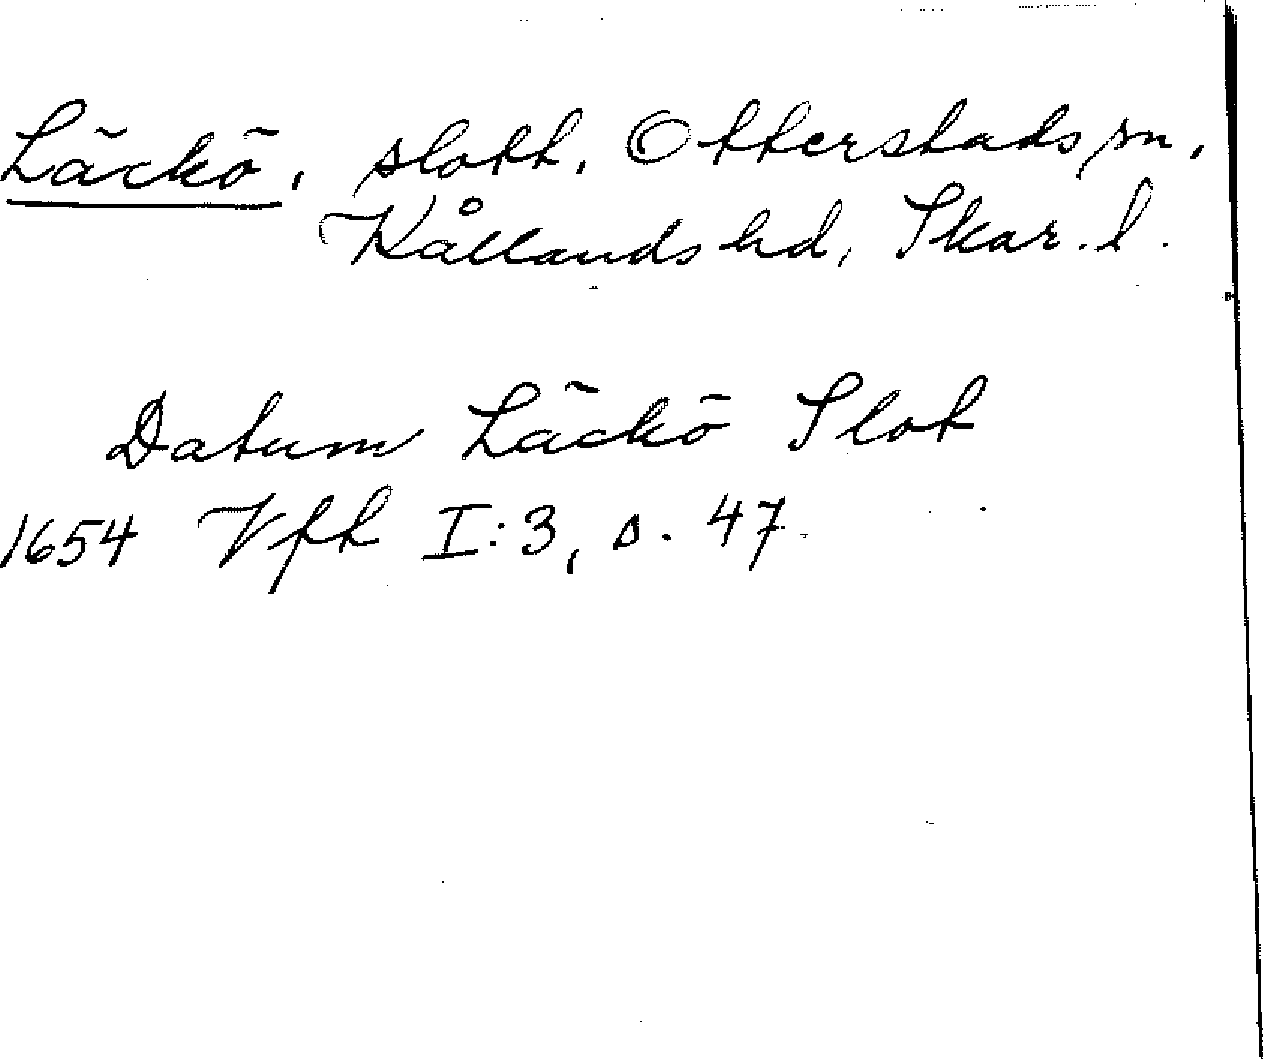 Läckö, slott, Otterstads sn,
Kållands hd, Skar. l.
Datum Läckö Slot
1654 Vfh I:3, s. 47